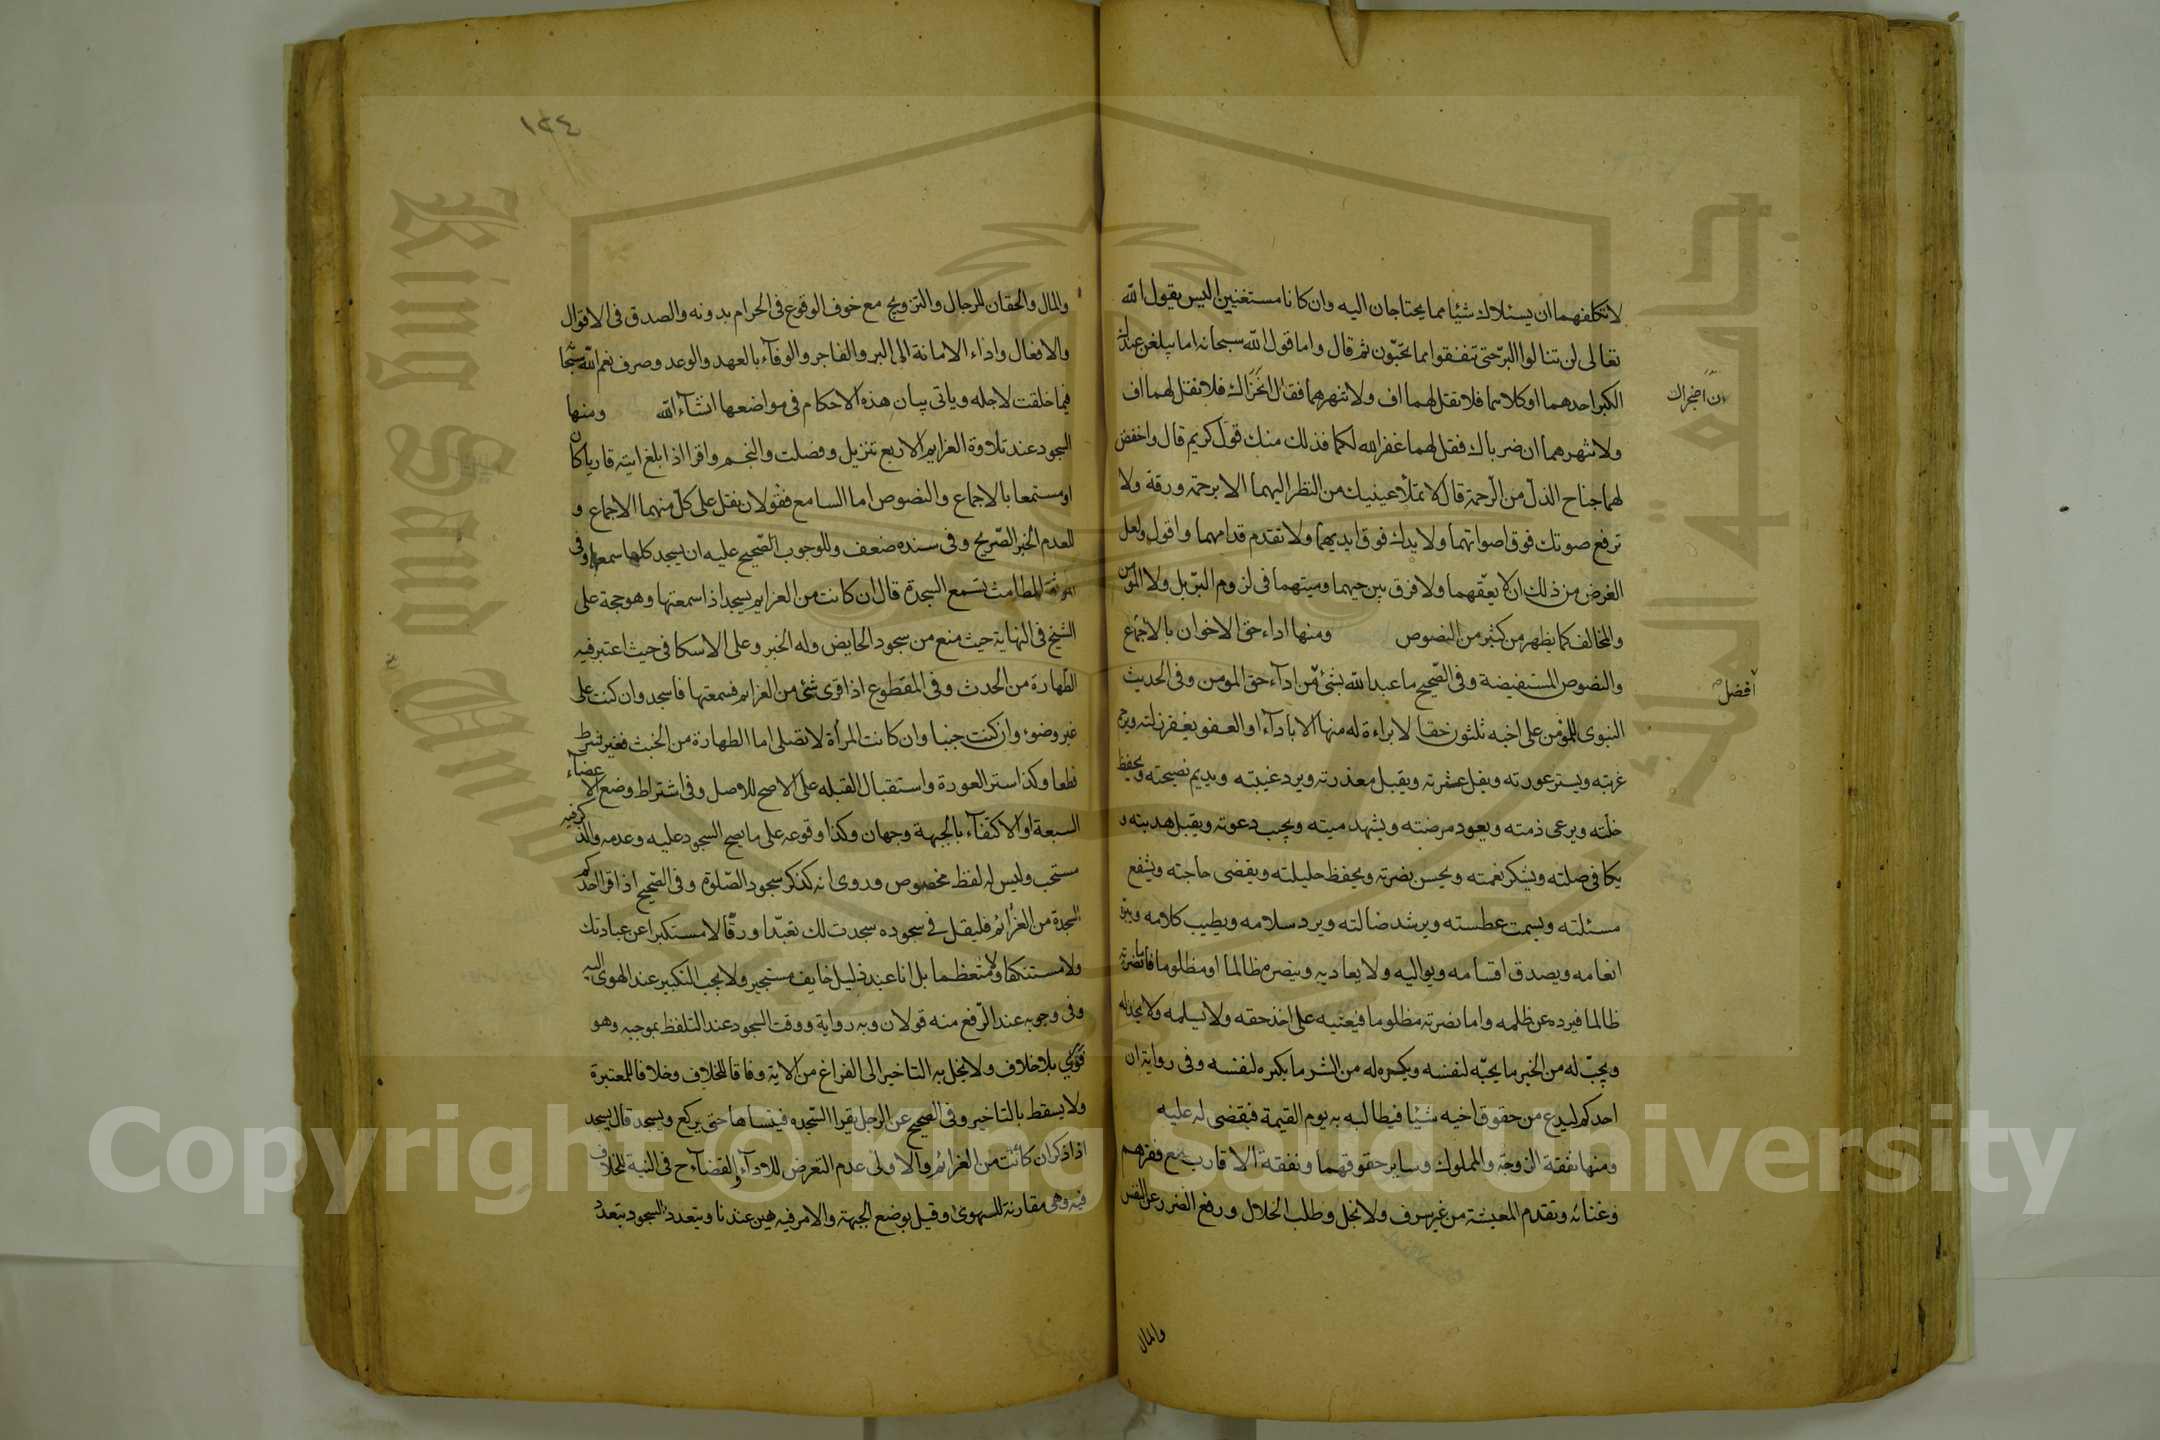 لا تكلفهما ان يسئلاك شيئا مما يحتاجان اليه وان كانا مستغنيين اليس يقول الله
تعالى لن تنالوا البر حتى تنفقوا مما تحبون ثم قال واما قول الله سبحانه اما يبلغن عندك
الكبر احدهما او كلاهما فلا تقل لهما اف ولا تنهرهما فقال ان اضجراك فلا تقل لهما اف
ان اضجراك
ولا تنهرهما ان ضرباك فقل لهما غفر الله لكما فذلك منك قول كريم قال واخفض
لهما جناح الذل من الرحمة قال لا تملأ عينيك من النظر اليهما الا برحمة ورقة ولا
ترفع صوتك فوق اصواتهما ولا يدك فوق ايديهما ولا تقدم قدامهما واقول ولعل
الغرض من ذلك ان لا يعقهما ولا فرق بين حيهما وميتهما في لزوم البر بل ولا المؤمن
والمخالف كما يظهر من كثير من النصوص ومنها اداء حق الاخوان بالاجماع
والنصوص المستفيضة وفي الصحيح ما عبد الله بشئ من اداء حق المومن وفي الحديث
افضل
النبوي للمؤمن على اخيه ثلثون حقا لا براءة له منها الا باداء او العفو يغفر زلته ويرحم
غربته ويستر عورته ويقل عثرته ويقبل معذرته ويرد غيبته ويديم نصيحته ويحفظ
خلته ويرعى ذمته ويعود مرضته ويشهد ميته ويجيب دعوته ويقبل هديته و
يكافي صلته ويشكر نعمته ويحسن نصرته ويحفظ حليلته ويقضي حاجته ويشفع
مسئلته ويسمت عطسته ويرشد ضالته ويرد سلامه ويطيب كلامه ويبر
انعامه ويصدق اقسامه ويواليه ولا يعاديه وينصره ظالما او مظلوما فاما نصرته
ظالما فيرده عن ظلمه واما نصرته مظلوما فيعنيه على اخذ حقه ولا يسلمه ولا يخذله
ويحب له من الخير ما يحبه لنفسه ويكره له من الشر ما يكره لنفسه وفي رواية ان
احدكم ليدع من حقوق اخيه شيئا فيطالبه به يوم القيمة فيقضى له عليه
ومنها نفقة الزوجة والمملوك وساير حقوقهما ونفقة الاقارب مع فقرهم
وغنائه وتقدم المعيشة من غير سرف ولا بخل وطلب الحلال ورفع الضرر عن النفس
والمال
١٤٤
والمال والختان للرجال والتزويج مع خوف الوقوع في الحرام بدونه والصدق في الاقوال
والافعال واداء الامانة الى البر والفاجر والوفاء بالعهد والوعد وصرف نعم الله سبحانه
فيما خلقت لاجله وياتي بيان هذه الاحكام في مواضعها انشاء الله ومنها
السجود عند تلاوة العزايم الاربع تنزيل وفصلت والنجم واقرا اذا بلغ ايته قاريا كان
او مستمعا بالاجماع والنصوص اما السامع فقولان نقل على كل منهما الاجماع و
للعدم الخبر الصريح وفي سنده ضعف وللوجوب الصحيح عليه ان يسجد كلما سمعها وفي
الموثق للطامث تسمع السجدة قال ان كانت من العزايم تسجد اذا سمعتها وهو حجة على
الشيخ في النهاية حيث منع من سجود الحايض وله الخبر وعلى الاسكافي حيث اعتبر فيه
الطهارة من الحدث وفي المقطوع اذا قرئ شئ من العزايم فسمعتها فاسجد وان كنت على
غير وضوء وان كنت جنبا وان كانت المرأة لا تصلى اما الطهارة من الخبث فغير شرط
قطعا وكذا ستر العورة واستقبال القبله على الاصح للاصل وفي اشتراط وضع الاعضاء
السبعة او الاكتفاء بالجبهة وجهان وكذا وقوعه على ما يصح السجود عليه وعدمه والذكر فيه
مستحب وليس له لفظ مخصوص وروى انه كذكر سجود الصلوة وفي الصحيح اذا قرا احدكم
السجدة من العزائم فليقل في سجوده سجدت لك تعبدا ورقا لا مستكبرا عن عبادتك
ولا مستنكفا ولا متعظما بل انا عبد ذليل خايف مستجير ولا يجب التكبير عند الهوى اليه
وفي وجوبه عند الرفع منه قولان وبه رواية ووقت السجود عند التلفظ بموجبه وهو
فوري بلا خلاف ولا يخل به التاخير الى الفراغ من الاية وفاقا للخلاف وخلافا للمعتبرة
ولا يسقط بالتاخير وفي الصحيح عن الرجل يقرا السجده فينساها حتى يركع ويسجد قال يسجد
اذا ذكر ان كانت من العزائم والاولى عدم التعرض للاداء والقضاء ح في النية للخلاف
فيه وهي مقارنة للهوى وقيل بوضع الجبهة والامر فيه هين عندنا ويتعدد السجود بتعدد
Copyright © King Saud University